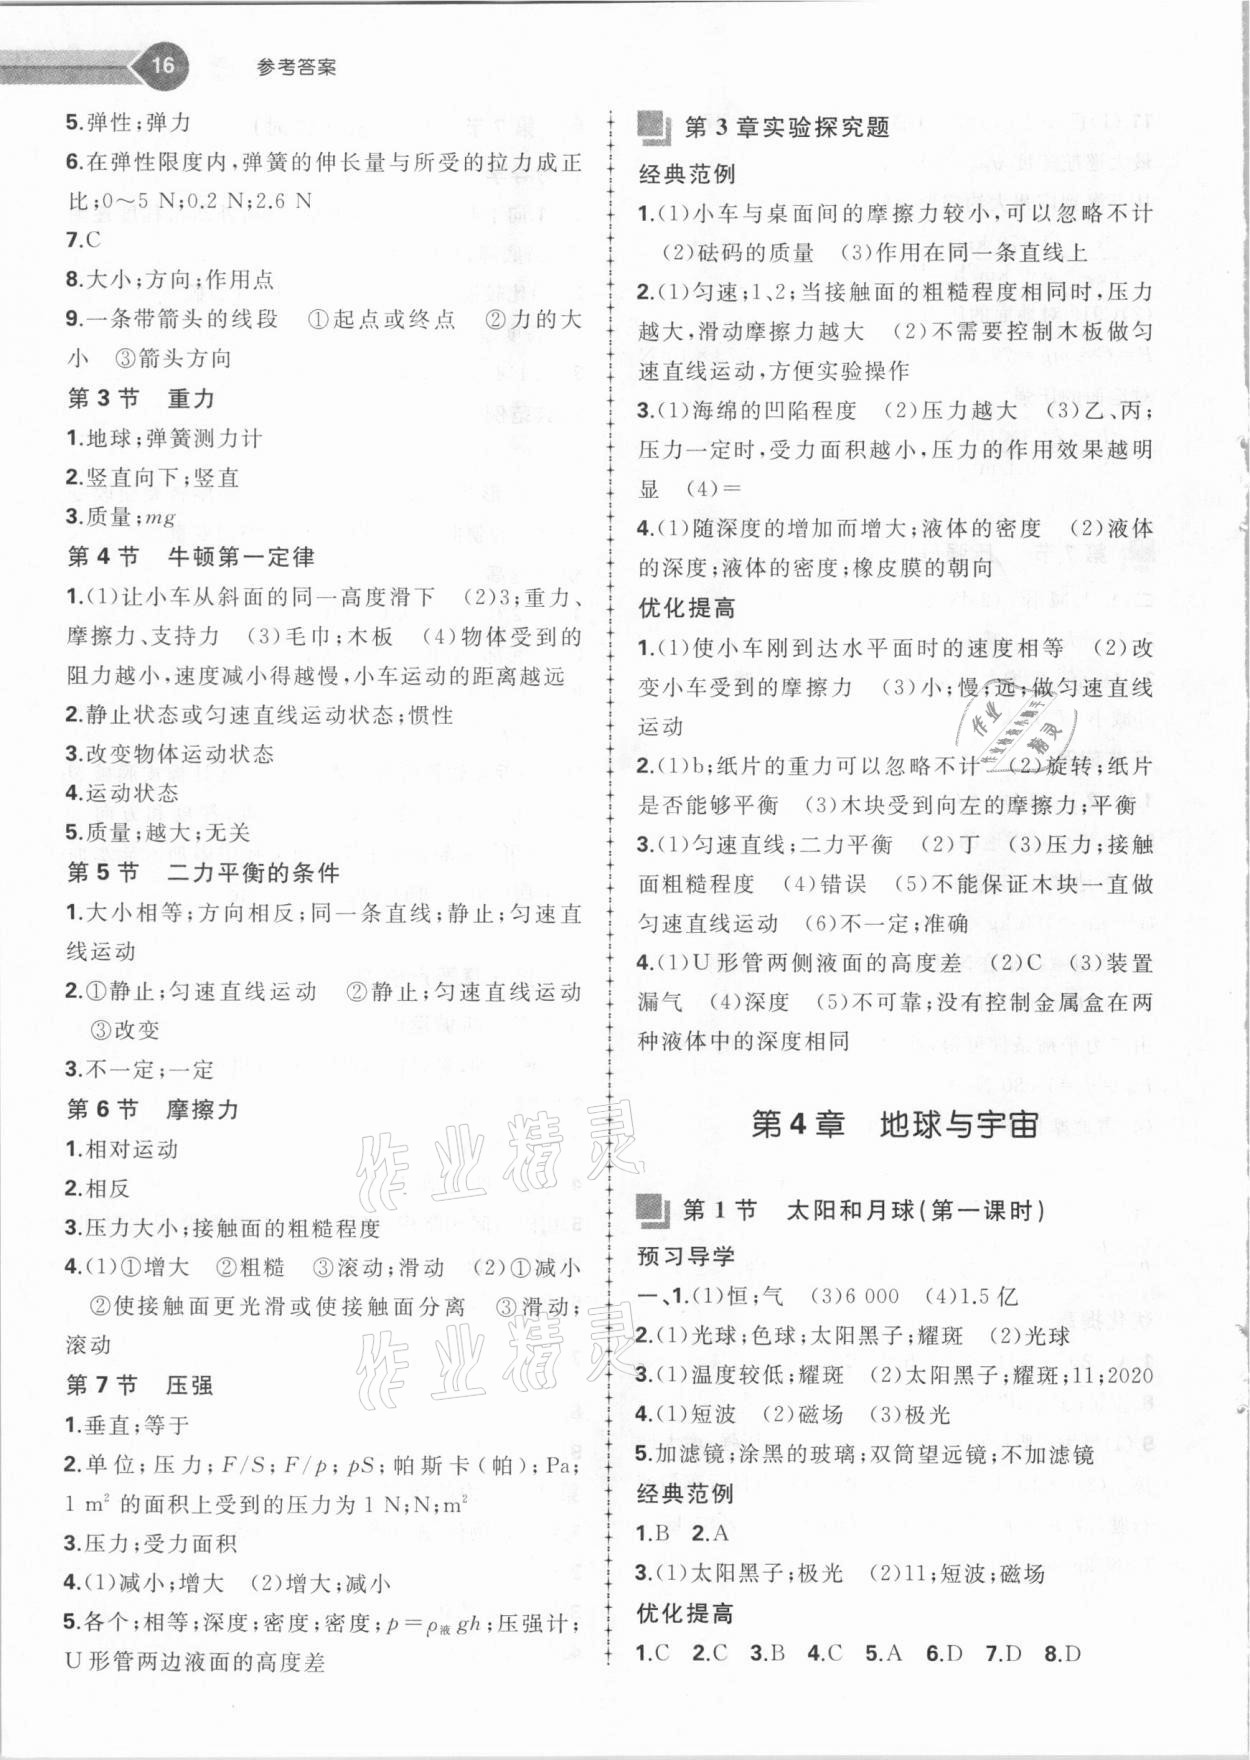 16 参考答案
5.弹性;弹力
6.在弹性限度内,弹簧的伸长量与所受的拉力成正
比;0～5 N;0.2 N;2.6 N
7.C
8.大小;方向;作用点
9.一条带箭头的线段 ①起点或终点 ②力的大
小 ③箭头方向
第3节 重力
1.地球;弹簧测力计
2.竖直向下;竖直
3.质量;mg
第4节 牛顿第一定律
1.(1)让小车从斜面的同一高度滑下 (2)3;重力、
摩擦力、支持力 (3)毛巾;木板 (4)物体受到的
阻力越小,速度减小得越慢,小车运动的距离越远
2.静止状态或匀速直线运动状态;惯性
3.改变物体运动状态
4.运动状态
5.质量;越大;无关
第5节 二力平衡的条件
1.大小相等;方向相反;同一条直线;静止;匀速直
线运动
2.①静止;匀速直线运动 ②静止;匀速直线运动
③改变
3.不一定;一定
第6节 摩擦力
1.相对运动
2.相反
3.压力大小;接触面的粗糙程度
4.(1)①增大 ②粗糙 ③滚动;滑动 (2)①减小
②使接触面更光滑或使接触面分离 ③滑动;
滚动
第7节 压强
1.垂直;等于
2.单位;压力;F/S;F/p;pS;帕斯卡(帕);Pa;
1 m²的面积上受到的压力为1 N;N;m²
3.压力;受力面积
4.(1)减小;增大 (2)增大;减小
5.各个;相等;深度;密度;密度;p=ρ液gh;压强计;
U形管两边液面的高度差
第3章实验探究题
经典范例
1.(1)小车与桌面间的摩擦力较小,可以忽略不计
(2)砝码的质量 (3)作用在同一条直线上
2.(1)匀速;1、2;当接触面的粗糙程度相同时,压力
越大,滑动摩擦力越大 (2)不需要控制木板做匀
速直线运动,方便实验操作
3.(1)海绵的凹陷程度 (2)压力越大 (3)乙、丙;
压力一定时,受力面积越小,压力的作用效果越明
显 (4)=
4.(1)随深度的增加而增大;液体的密度 (2)液体
的深度;液体的密度;橡皮膜的朝向
优化提高
1.(1)使小车刚到达水平面时的速度相等 (2)改
变小车受到的摩擦力 (3)小;慢;远;做匀速直线
运动
2.(1)b;纸片的重力可以忽略不计 (2)旋转;纸片
是否能够平衡 (3)木块受到向左的摩擦力;平衡
3.(1)匀速直线;二力平衡 (2)丁 (3)压力;接触
面粗糙程度 (4)错误 (5)不能保证木块一直做
匀速直线运动 (6)不一定;准确
4.(1)U形管两侧液面的高度差 (2)C (3)装置
漏气 (4)深度 (5)不可靠;没有控制金属盒在两
种液体中的深度相同
第4章 地球与宇宙
第1节 太阳和月球(第一课时)
预习导学
一、1.(1)恒;气 (3)6 000 (4)1.5亿
2.(1)光球;色球;太阳黑子;耀斑 (2)光球
3.(1)温度较低;耀斑 (2)太阳黑子;耀斑;11;2020
4.(1)短波 (2)磁场 (3)极光
5.加滤镜;涂黑的玻璃;双筒望远镜;不加滤镜
经典范例
1.B 2.A
3.(1)太阳黑子;极光 (2)11;短波;磁场
优化提高
1.C 2.C 3.B 4.C 5.A 6.D 7.D 8.D
作业精灵
作业精灵
作业
精灵